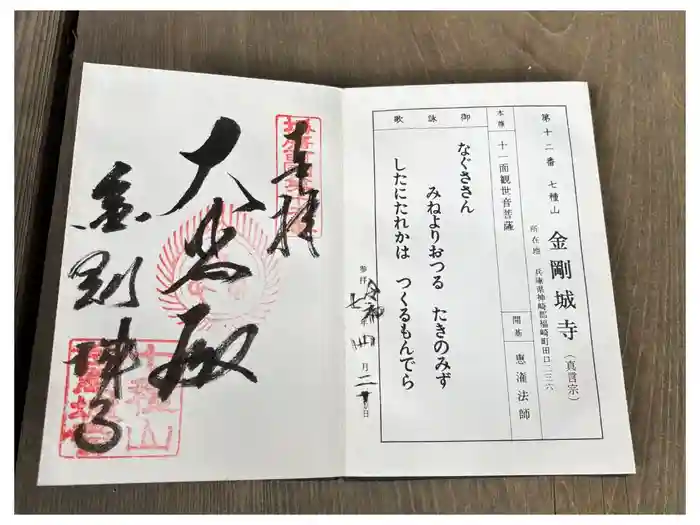 第十二番 七種山 金剛城寺(真言宗)
所在地 兵庫県神崎郡福崎町田口二三六
本尊 十一面観世音菩薩
開基 恵潅法師
御詠歌
なぐささん
みねよりおつる たきのみず
したにたれかは つくるもんでら
参拝 令和 七年 四月 二十日
奉拝
大悲殿
金剛城寺
七種山